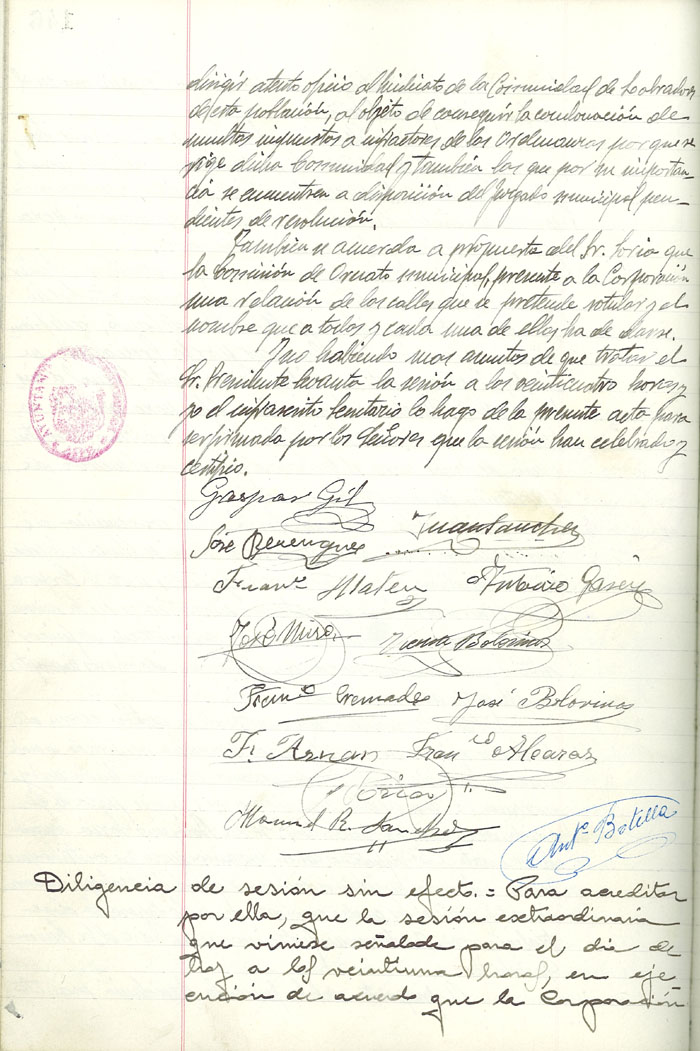 dirigir atento oficio al Sindicato de la Comunidad de Labradores
de esta población, al objeto de conseguir la condonación de
multas impuestas a infractores de las Ordenanzas por que se
rige dicha Comunidad y también las que por su importan-
cia se encuentren a disposición del Juzgado municipal pen-
dientes de resolución.
También se acuerda a propuesta del Sr. Soria que
la Comisión de Ornato municipal, presente a la Corporación
una relación de las calles que se pretende rotular y el
nombre que a todas y cada una de ellas ha de darse.
Y no habiendo mas asuntos de que tratar el
Sr. Presidente levanta la sesión a las veinticuatro horas y
yo el infrascrito Secretario lo hago de la presente acta para
ser firmada por los Señores que la sesión han celebrado y
certifico.
Gaspar Gil
José Berenguer Juan Sanchez
Franco Mateu Antonio
J. R. Miró Vicente Botorinos
Franco Cremades José Botorinos
F. Arnau Franco Alcaraz
Soria
Manuel R. Sanchez
Anto Botella
Diligencia de sesión sin efecto. = Para acreditar
por ella, que la sesión extraordinaria
que viniese señalada para el día de
hoy a las veintiuna horas, en eje
cución de acuerdo que la Corporación